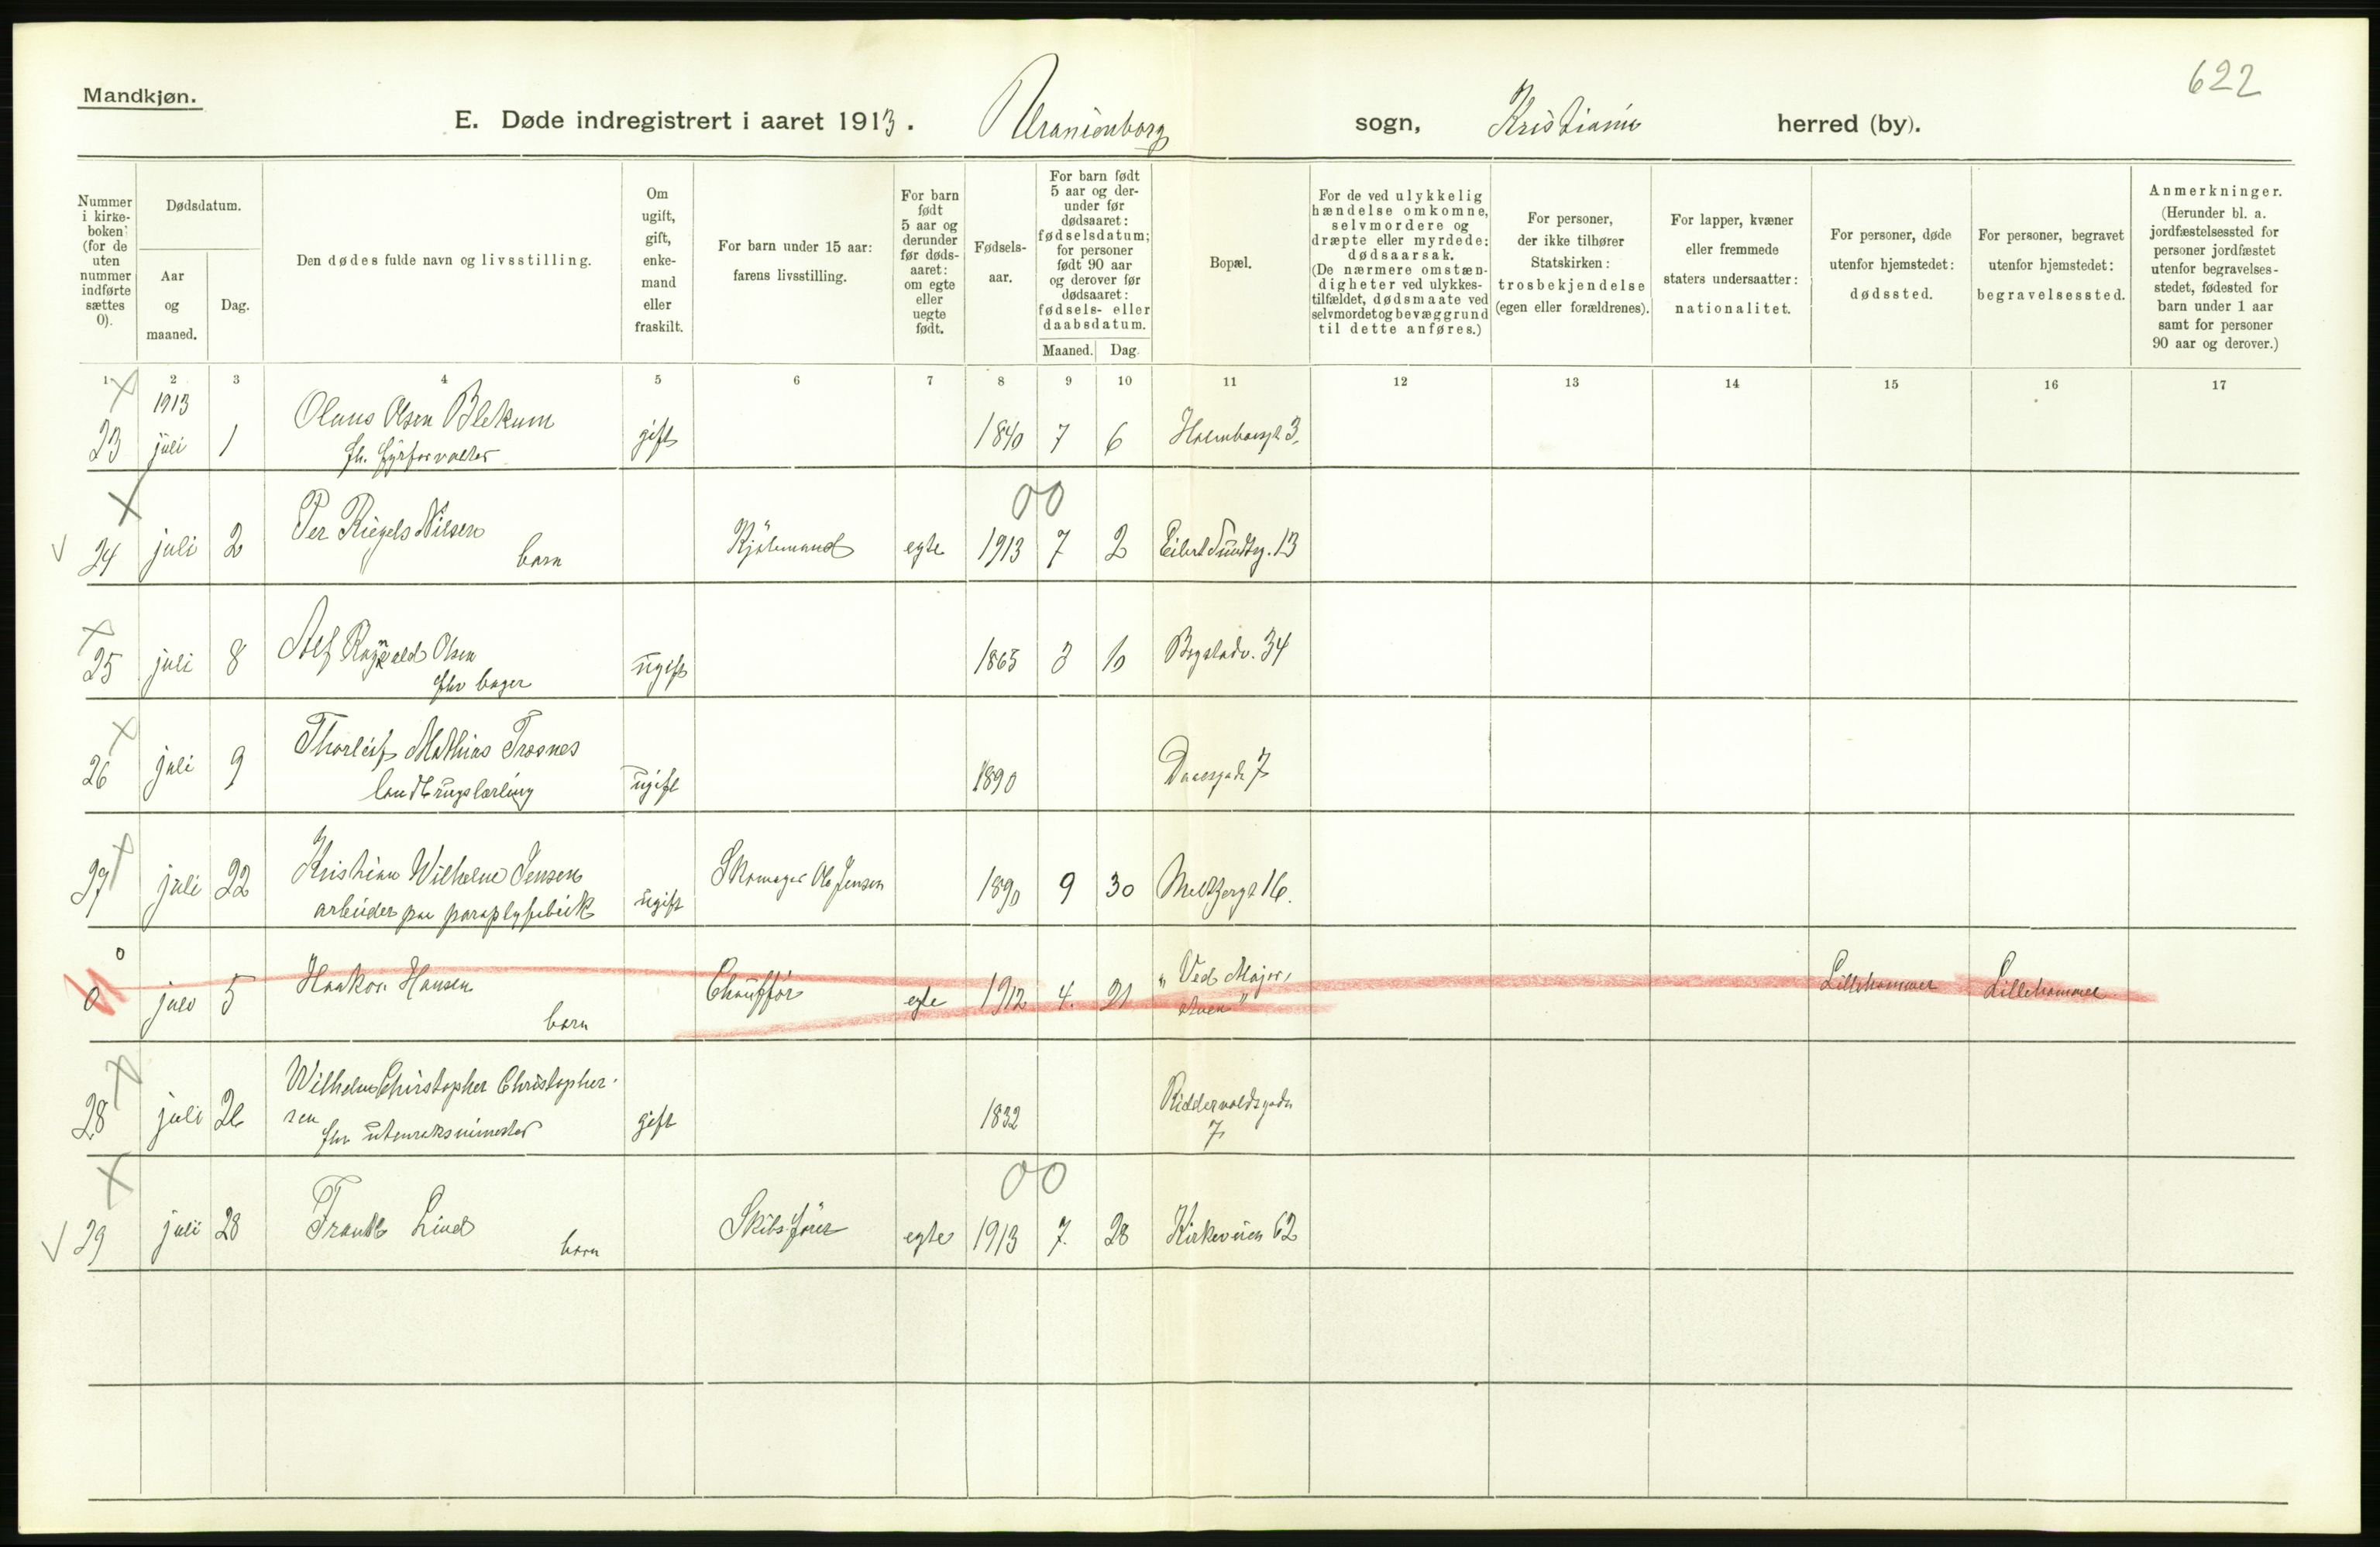 622
Mandkjøn.
E. Døde indregistrert i aaret 1913. Uranienborg sogn, Kristiania herred (by).
Nummer i kirkeboken (for de uten nummer indførte sættes 0).
Dødsdatum.
Aar og maaned.
Dag.
Den dødes fulde navn og livsstilling.
Om ugift, gift, enkemand eller fraskilt.
For barn under 15 aar: farens livsstilling.
For barn født 5 aar og derunder før dødsaaret: om egte eller uegte født.
Fødselsaar.
For barn født 5 aar og derunder før dødsaaret: fødselsdatum; for personer født 90 aar og derover før dødsaaret: fødsels- eller daabsdatum.
Maaned. Dag.
Bopæl.
For de ved ulykkelig hændelse omkomne, selvmordere og dræpte eller myrdede: dødsaarsak. (De nærmere omstændigheter ved ulykkestilfældet, dødsmaate ved selvmordet og bevæggrund til dette anføres.)
For personer, der ikke tilhører Statskirken: trosbekjendelse (egen eller forældrenes).
For lapper, kvæner eller fremmede staters undersaatter: nationalitet.
For personer, døde utenfor hjemstedet: dødssted.
For personer, begravet utenfor hjemstedet: begravelsessted.
Anmerkninger. (Herunder bl. a. jordfæstelsessted for personer jordfæstet utenfor begravelsesstedet, fødested for barn under 1 aar samt for personer 90 aar og derover.)
1 2 3 4 5 6 7 8 9 10 11 12 13 14 15 16 17
1913
23 juli 1 Olaus Olsen Blekum gift 1840 7 6 3
fh. fyrforvalter
00
24 juli 2 Per Riegels Nilsen barn Kjøbmand egte 1913 7 2 Eilert Sundtsg. 13
25 juli 8 Alf Ragnvald Olsen ugift 1865 3 10 Bogstadv. 34
fhv bager
26 juli 9 Thorleif Mathias Trosnes ugift 1890 Daasgade 7
landbrugslærling
27 juli 22 Kristian Wilhelm Jensen ugift Skomager Ole Jensen 1890 9 30 Meltzersgt 16.
arbeider paa paraplyfabrik
0 juli 5 Haakon Hansen barn Chauffør egte 1912 4. 21 "Ved Majorstuen" Lillehammer Lillehammer
28 juli 26 Wilhelm Christopher Christophersen gift 1832 Riddervoldsgade 7
fhv utenriksminister
00
29 juli 28 Frantz Lind barn Skibsfører egte 1913 7. 28 Kirkeveien 62